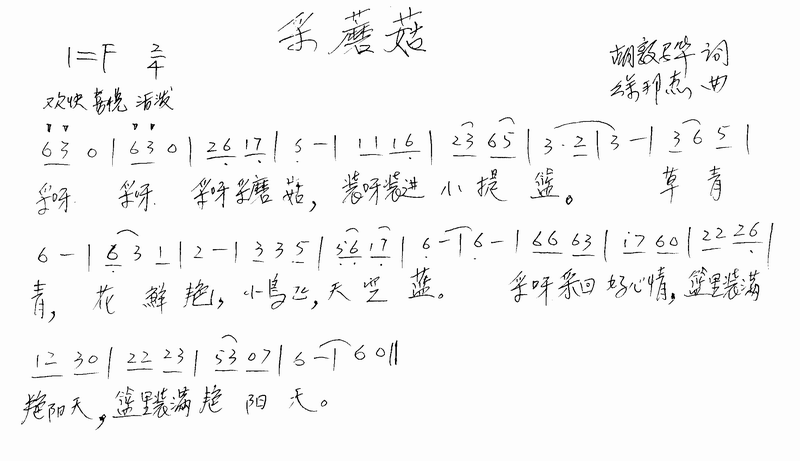 采蘑菇
1=F 2/4
胡敦华 词
徐邦杰 曲
欢快 喜悦 活泼
63 0 | 63 0 | 26 17 | 5 - | 11 16 | 23 65 | 3·2 | 3 - | 36 5 |
采呀 采呀 采呀采磨菇, 装呀装进小提篮。 草青
6 - | 63 1 | 2 - | 33 5 | 56 17 | 6 - | 6 - | 66 63 | 17 60 | 22 26 |
青, 花鲜艳, 小鸟飞, 天空蓝。 采呀采回好心情, 篮里装满
12 30 | 22 23 | 53 07 | 6 - | 60 ‖
艳阳天, 篮里装满艳阳天。